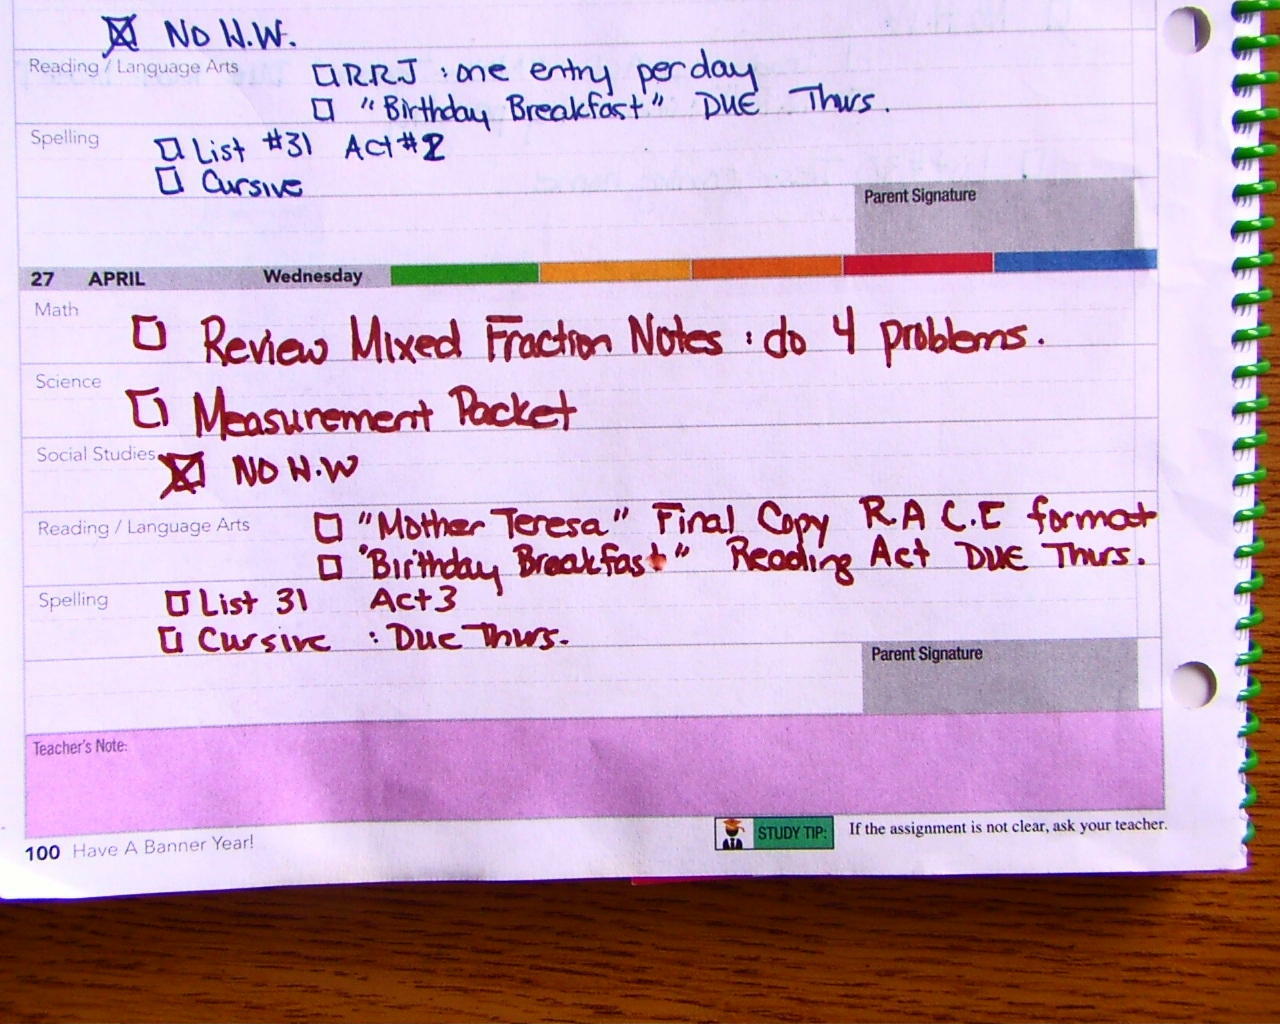 NO H.W.
Reading / Language Arts
RRJ : one entry per day
"Birthday Breakfast" DUE Thurs.
Spelling
List #31 Act #2
Cursive
Parent Signature
27 APRIL Wednesday
Math
Review Mixed Fraction Notes : do 4 problems.
Science
Measurement Packet
Social Studies
NO H.W
Reading / Language Arts
"Mother Teresa" Final Copy R.A C.E format
"Birthday Breakfast" Reading Act DUE Thurs.
Spelling
List 31 Act 3
Cursive : Due Thurs.
Parent Signature
Teacher's Note:
STUDY TIP: If the assignment is not clear, ask your teacher.
100 Have A Banner Year!